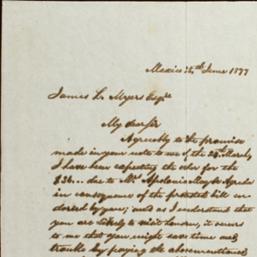 Mexico 14th June 1877
James L. Myers Esqre
My dear Sir
Agreeably to the promise
made in your note to me of the 28th March,
I have been expecting the order for the
$36... due to Mr Apolonio
in consequence of the protested bill en-
dorsed by you; and as I understand that
you are likely to visit London, it occurs
to me that you might save time and
trouble by paying the abovementioned